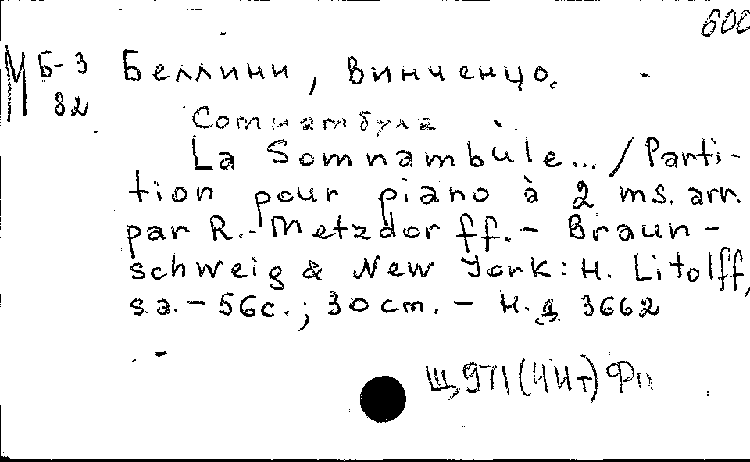 600
М Б-3 Беллини, Винченцо.
82
Сомнамбула
La Somnambule... / Parti-
tion pour piano à 2 ms. arr.
par R. Metzdorff. - Braun-
schweig & New York: H. Litolff,
s.a. - 56c.; 30 cm. - Н.д. 3662
Щ971(4Ит)Фп